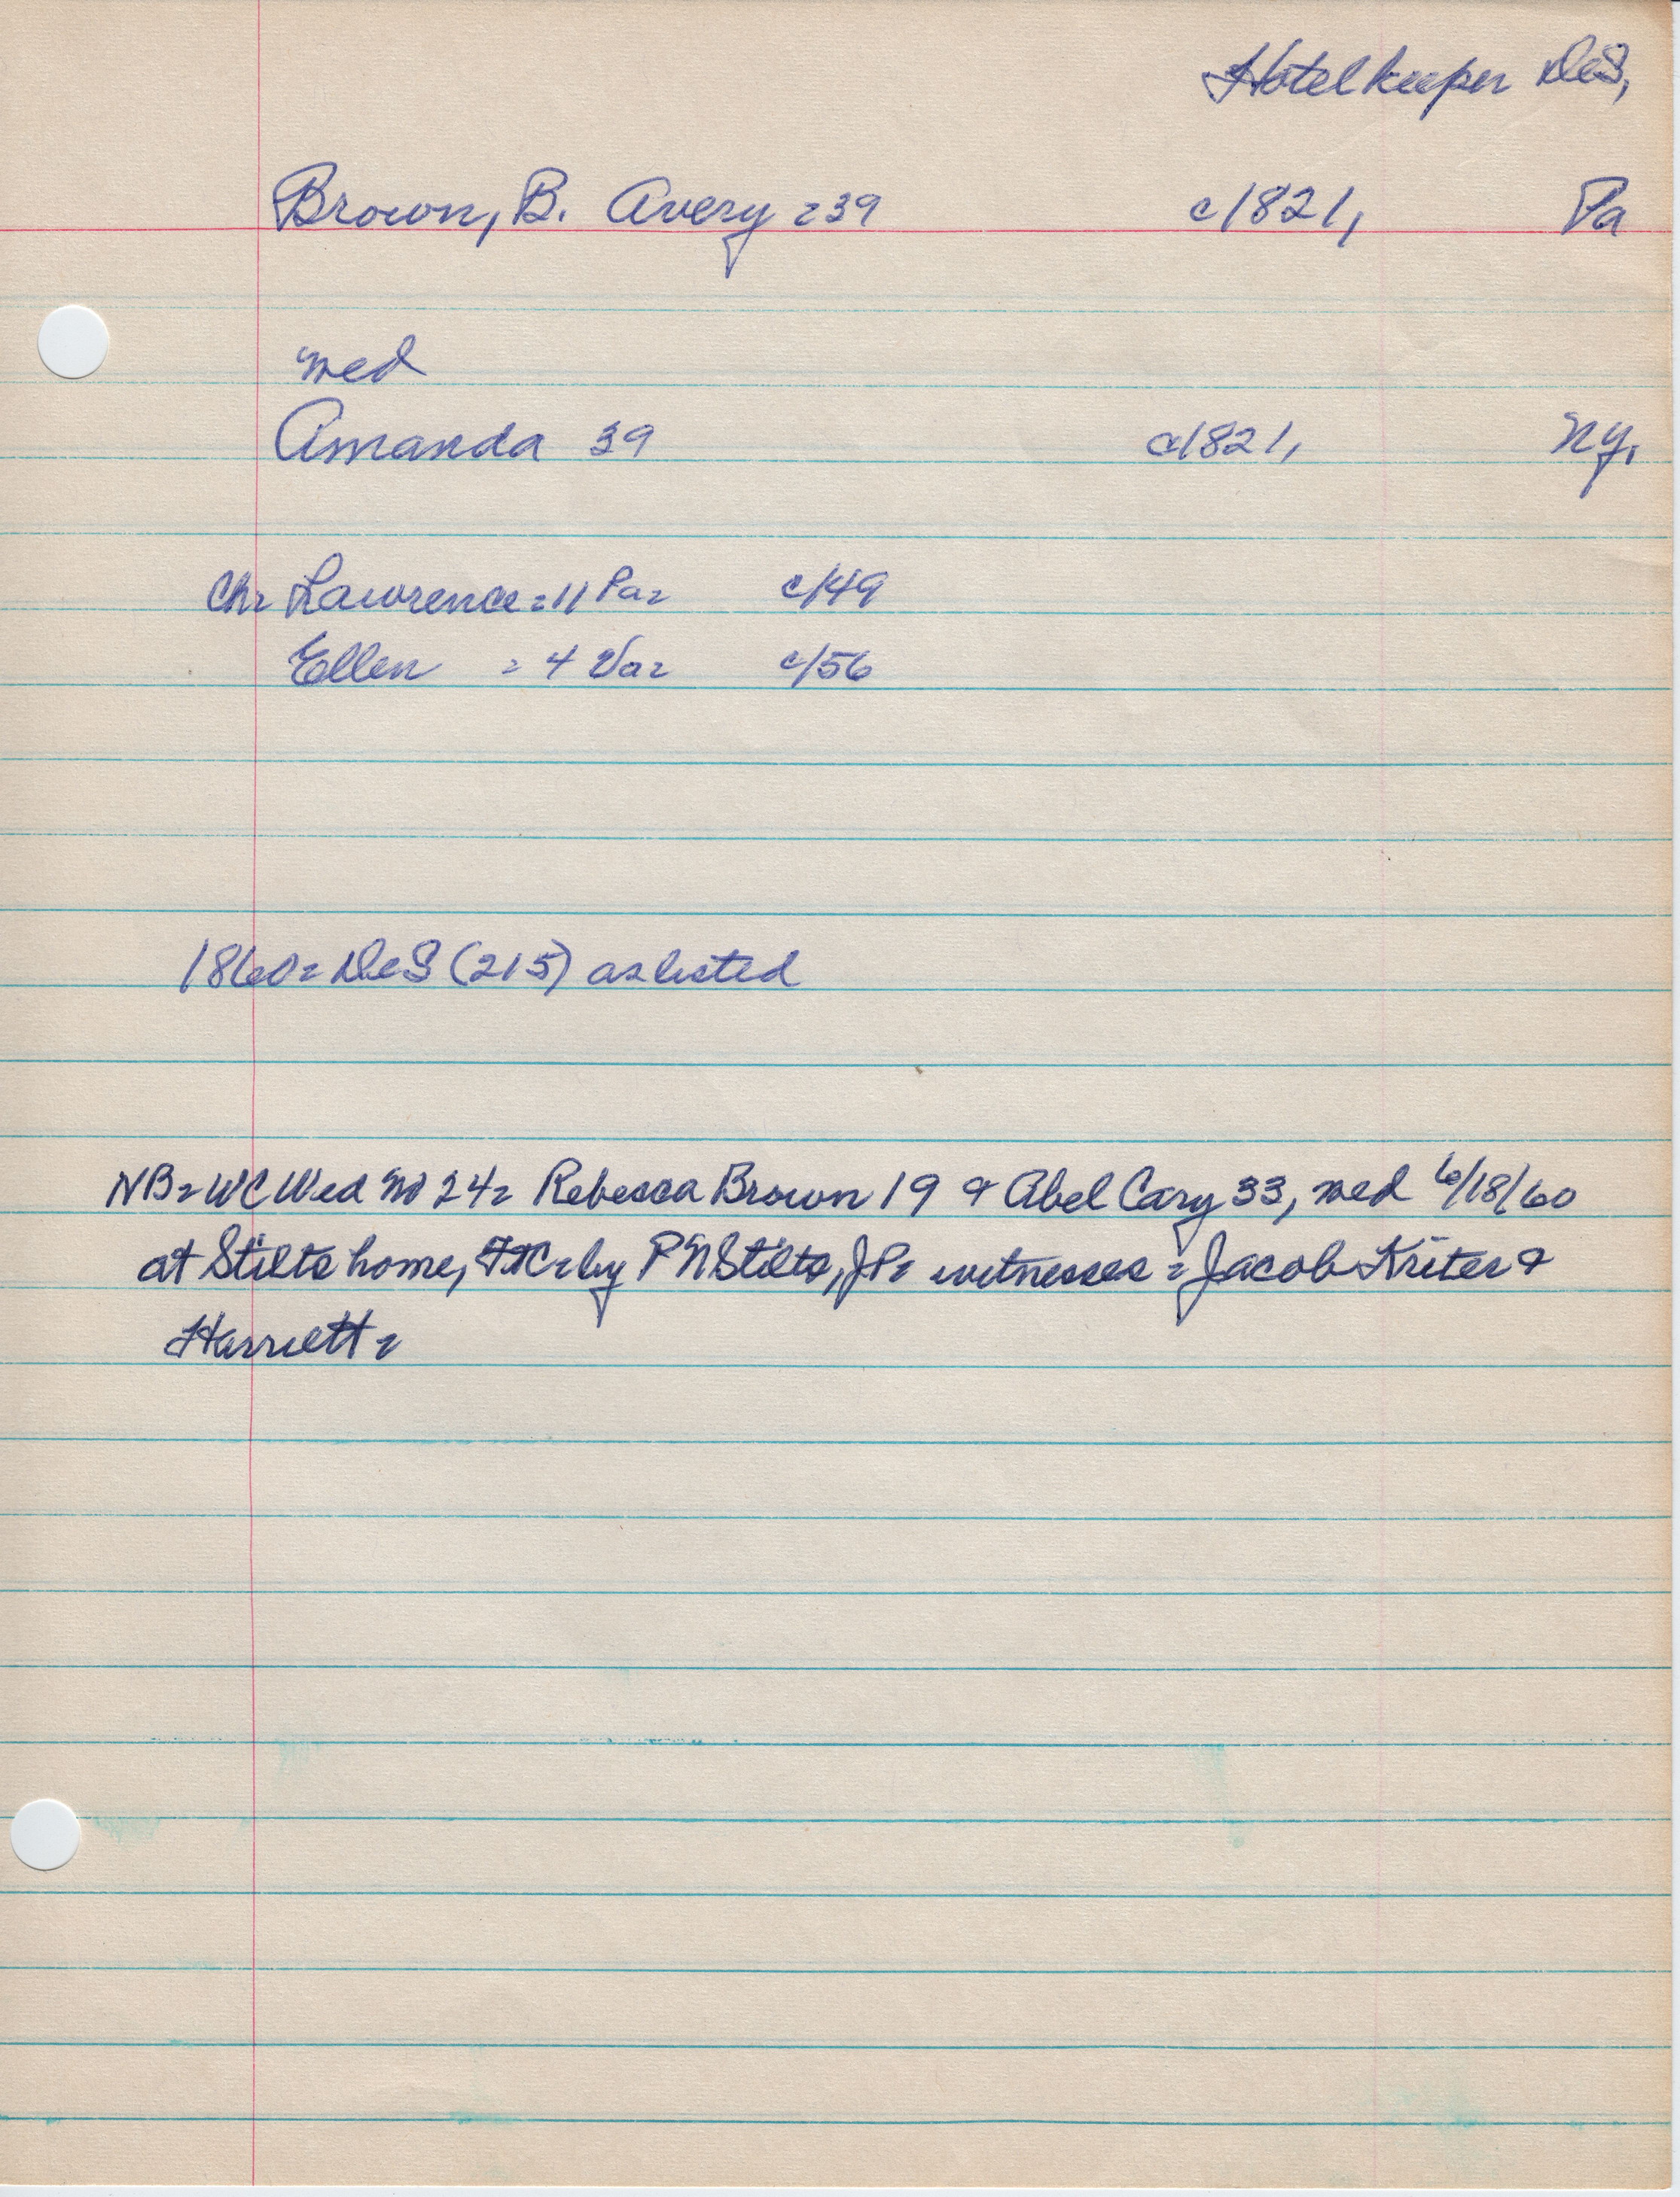 Hotelkeeper DeS,
Brown, B. Avery = 39 c1821, Pa
med
Amanda 39 c1821, NY,
Ch= Lawrence = 11 Pa= c/49
Ellen = 4 Va= c/56
1860= DeS (215) as listed
NB= WC Wed No 24= Rebecca Brown 19 & Abel Cary 33, med 6/18/60
at Stilts home, FtC= by P N Stilts, JP= witnesses = Jacob Kriter &
Harriett =